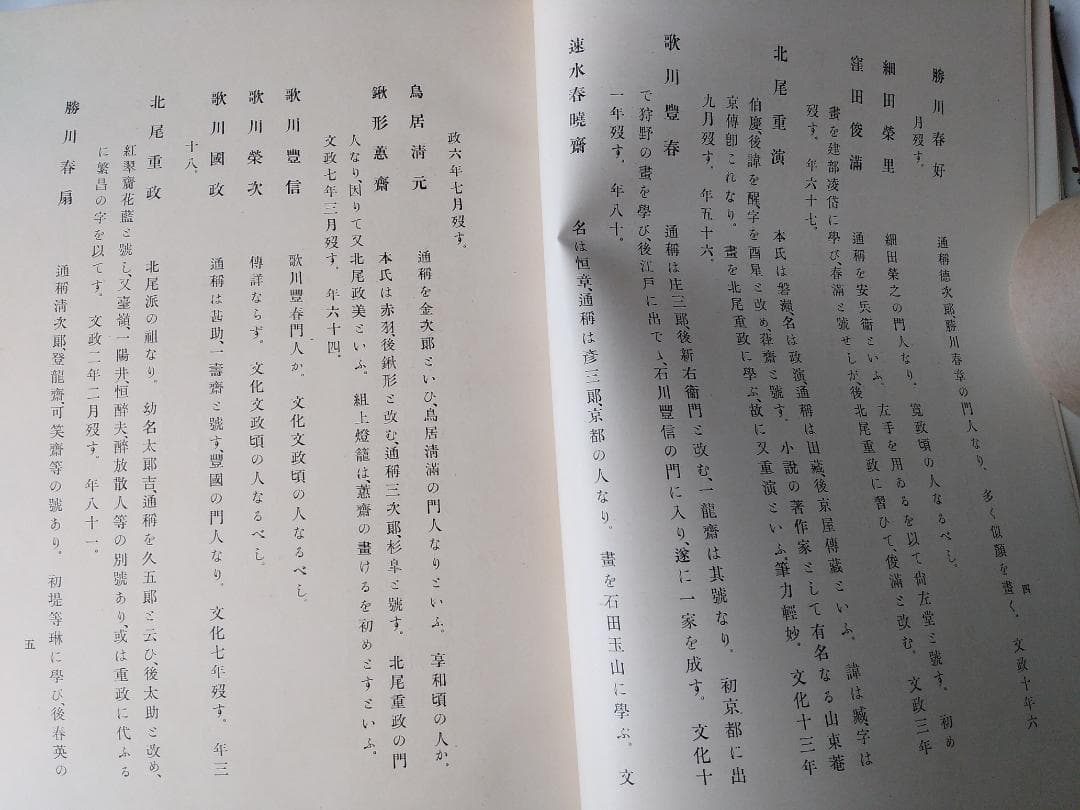 四
勝川春好　通稱德次郎、勝川春章の門人なり、多く似顏を畫く。文政十年六
月歿す。
細田榮里　細田榮之の門人なり、寬政頃の人なるべし。
窪田俊滿　通稱を安兵衞といふ、左手を用ゐるを以て尙左堂と號す。初め
畫を建部凌岱に學び、春滿と號せしが後北尾重政に習ひて、俊滿と改む。文政三年
歿す。年六十七。
北尾重演　本氏は磐瀨、名は政演、通稱は田藏、後京屋傳藏といふ。諱は 字は
伯慶、後諱を醒、字を酉星と改め、葎齋と號す。小說の著作家として有名なる山東菴
京傳卽これなり。畫を北尾重政に學ぶ、故に又重演といふ。筆力輕妙。文化十三年
九月歿す。年五十六。
歌川豐春　通稱は庄三郞、後新右衞門と改む、一龍齋は其號なり。初京都に出
で狩野の畫を學び、後江戶に出でゝ、石川豐信の門に入り、遂に一家を成す。文化十
一年歿す。年八十。
速水春曉齋　名は恒章、通稱は彥三郞、京都の人なり。畫を石田玉山に學ぶ。文
政六年七月歿す。
鳥居淸元　通稱を金次郞といひ、鳥居淸滿の門人なりといふ。享和頃の人か。
鍬形蕙齋　本氏は赤羽、後鍬形と改む、通稱三次郞、杉皐と號す。北尾重政の門
人なり、因りて又北尾政美といふ。組上燈籠は、蕙齋の畫けるを初めとすといふ。
文政七年三月歿す。年六十四。
歌川豐信　歌川豐春門人か。文化文政頃の人なるべし。
歌川榮次　傳詳ならず。文化文政頃の人なるべし。
歌川國政　通稱は甚助、一壽齋と號す、豐國の門人なり。文化七年歿す。年三
十八。
北尾重政　北尾派の祖なり。幼名太郞吉、通稱を久五郞と云ひ、後太助と改め、
紅翠齋花藍と號し、又臺嶺、一陽井、恒醉夫、醉放散人等の別號あり、或は重政に代ふる
に繁昌の字を以てす。文政二年二月歿す。年八十一。
勝川春扇　通稱淸次郞、登龍齋、可笑齋等の號あり。初堤等琳に學び、後春英の
五